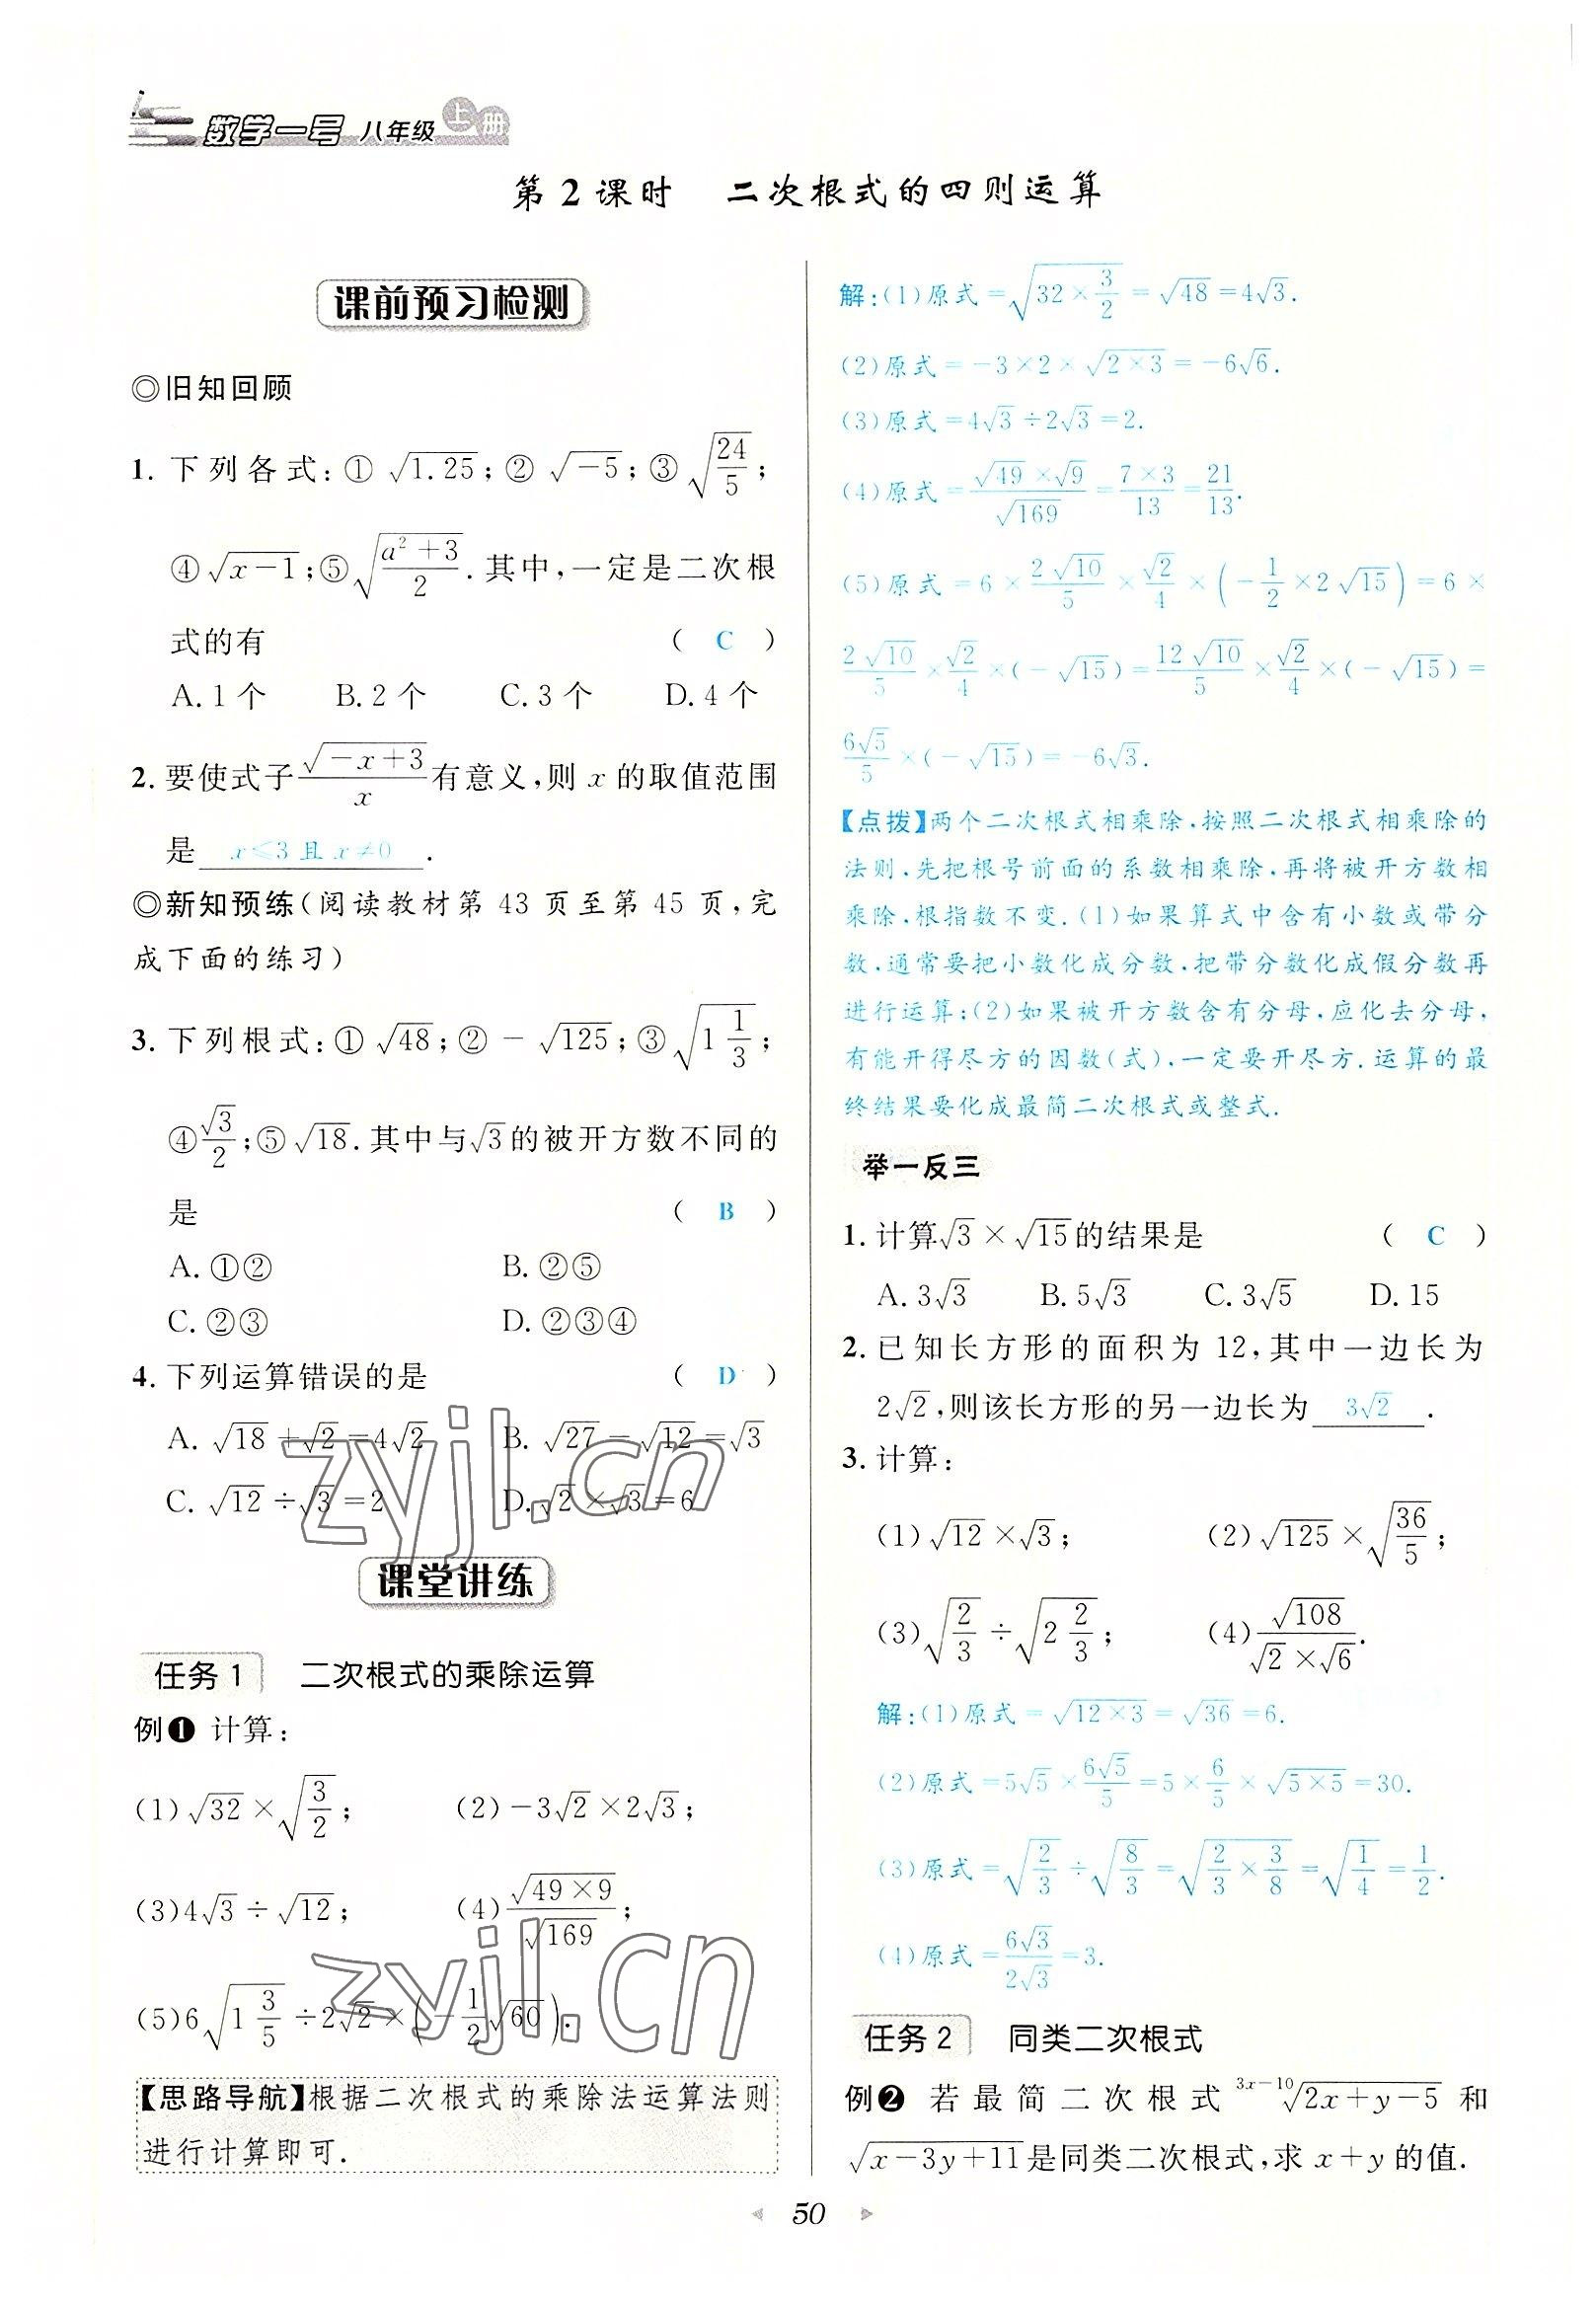 数学一号 八年级 上册
第2课时 二次根式的四则运算
课前预习检测
◎旧知回顾
1. 下列各式:① √1.25;② √-5;③ √(24/5);
④ √(x-1);⑤ √((a²+3)/2).其中,一定是二次根
式的有 ( C )
A. 1个 B. 2个 C. 3个 D. 4个
2. 要使式子 √(-x+3)/x 有意义,则 x 的取值范围
是 x≤3 且 x≠0 .
◎新知预练(阅读教材第 43 页至第 45 页,完
成下面的练习)
3. 下列根式:① √48;② -√125;③ √(1 1/3);
④ √3/2;⑤ √18.其中与√3的被开方数不同的
是 ( B )
A. ①② B. ②⑤
C. ②③ D. ②③④
4. 下列运算错误的是 ( D )
A. √18+√2=4√2 B. √27-√12=√3
C. √12÷√3=2 D. √2×√3=6
课堂讲练
任务1 二次根式的乘除运算
例❶ 计算:
(1)√32×√(3/2); (2)-3√2×2√3;
(3)4√3÷√12; (4)√(49×9)/√169;
(5)6√(1 3/5)÷2√2×(-1/2√60).
【思路导航】根据二次根式的乘除法运算法则
进行计算即可.
解:(1)原式=√(32×3/2)=√48=4√3.
(2)原式=-3×2×√(2×3)=-6√6.
(3)原式=4√3÷2√3=2.
(4)原式=(√49×√9)/√169=(7×3)/13=21/13.
(5)原式=6×(2√10)/5×√2/4×(-1/2×2√15)=6×
(2√10)/5×√2/4×(-√15)=(12√10)/5×√2/4×(-√15)=
(6√5)/5×(-√15)=-6√3.
【点拨】两个二次根式相乘除,按照二次根式相乘除的
法则,先把根号前面的系数相乘除,再将被开方数相
乘除,根指数不变.(1)如果算式中含有小数或带分
数,通常要把小数化成分数,把带分数化成假分数再
进行运算;(2)如果被开方数含有分母,应化去分母,
有能开得尽方的因数(式),一定要开尽方.运算的最
终结果要化成最简二次根式或整式.
举一反三
1. 计算√3×√15的结果是 ( C )
A. 3√3 B. 5√3 C. 3√5 D. 15
2. 已知长方形的面积为 12,其中一边长为
2√2,则该长方形的另一边长为 3√2 .
3. 计算:
(1)√12×√3; (2)√125×√(36/5);
(3)√(2/3)÷√(2 2/3); (4)√108/(√2×√6).
解:(1)原式=√(12×3)=√36=6.
(2)原式=5√5×(6√5)/5=5×6/5×√(5×5)=30.
(3)原式=√(2/3)÷√(8/3)=√(2/3×3/8)=√(1/4)=1/2.
(4)原式=(6√3)/(2√3)=3.
任务2 同类二次根式
例❷ 若最简二次根式 ³ˣ⁻¹⁰√(2x+y-5) 和
√(x-3y+11)是同类二次根式,求 x+y 的值.
50
zyjl.cn
zyjl.cn